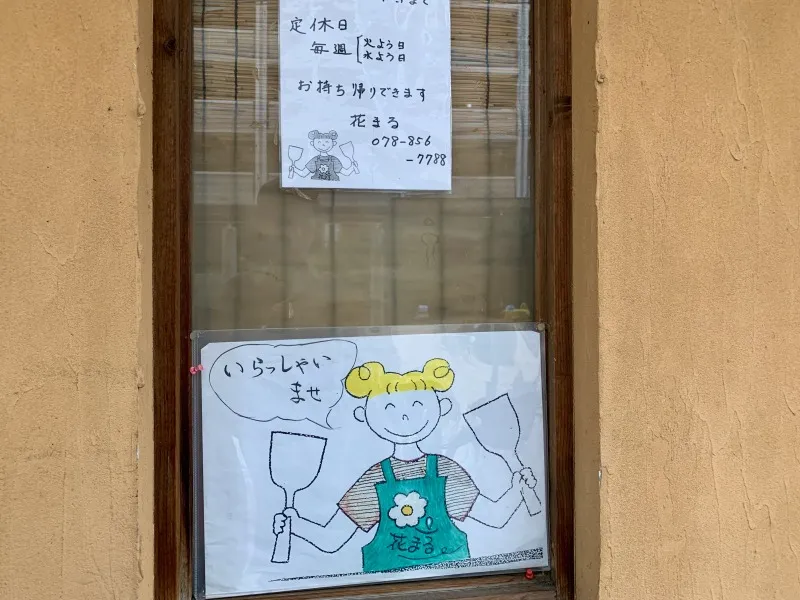 定休日
毎週 火よう日
水よう日
お持ち帰りできます
花まる
078-856
-7788
いらっしゃい
ませ
花まる